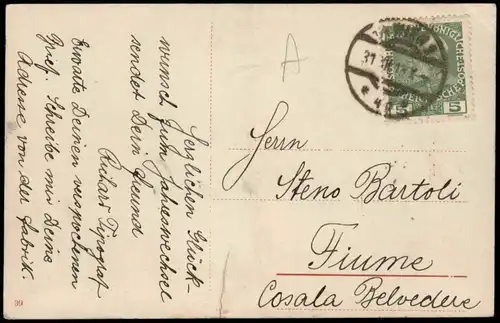 Herzlichen Glück
wunsch zum Jahreswechsel
sendet Dein Freund
Richard Tipograf
Erwarte Deinen versprochenen
Brief. Schreibe mir Deine
Adresse von der Fabrik.
A
31 XII
5 5
Herrn
Steno Bartoli
Fiume
Cosala Belvedere
99